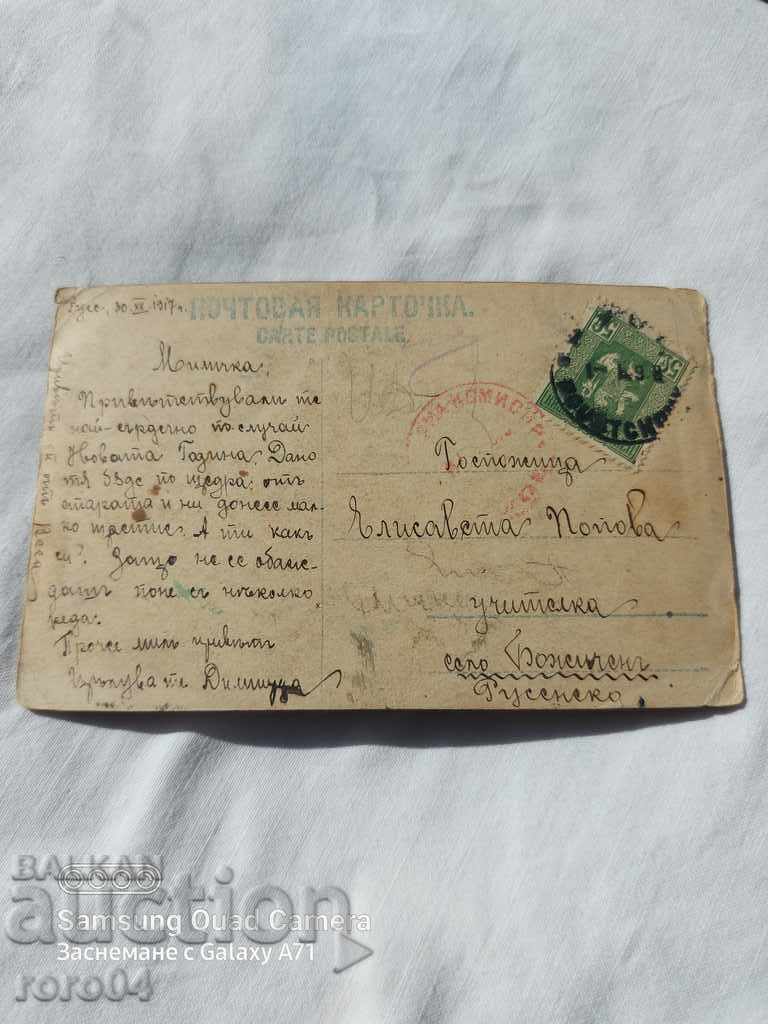 Русе, 30 XII 1917 г.
ПОЧТОВАЯ КАРТОЧКА.
CARTE POSTALE.
Миличка,
Привѣтствували те
най-сърдечно по случай
Новата Година. Дано
тя бъде по щедра отъ
старата и ни донесе мал-
ко щастие. А ти какъ
си? Защо не се обаж-
дашъ поне съ нѣколко
реда.
Прочее милъ привѣтъ
Цѣлува те Димитра
НА КОМИС
5
5
Госпожица
Елисавета Попова
учителка
село Божиченъ
Русенско
BALKAN
auction
roro04
Samsung Quad Camera
Заснемане с Galaxy A71